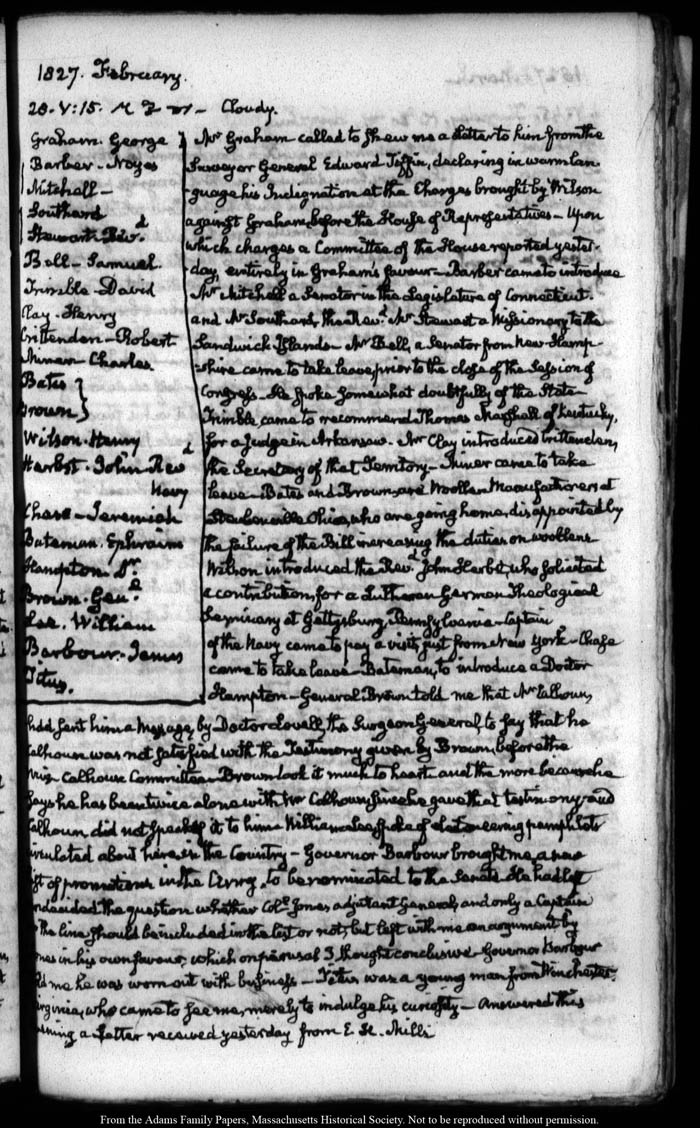 1827. February.
28. V:15. Cloudy.
Graham. George
Barber - Noyes
Mitchell -
Southard
Stewart. Revd.
Bell - Samuel.
Trimble - David
Clay - Henry
Crittenden - Robert
Miner Charles
Bates }
Brown }
Wilson. Henry
Herbst. John - Revd
Navy
Chase - Jeremiah
Bateman. Ephraim
Hampton. Dr.
Brown. Genl.
Lee. William
Barbour. James
Titus.
Mr Graham called to shew me a Letter to him from the
Surveyor General Edward Tiffin, declaring in warm lan
guage his Indignation at the Charges brought by Wilson
against Graham, before the House of Representatives - Upon
which charges a Committee of the House reported yester-
day, entirely in Graham's favour - Barber came to introduce
Mr Mitchell a Senator in the Legislature of Connecticut.
and Mr Southard, the Revd. Mr Stewart a Missionary to the
Sandwich Islands - Mr Bell, a Senator from New Hamp-
shire came to take leave, prior to the close of the Session of
Congress - He spoke somewhat doubtfully of the State -
Trimble came to recommend Thomas Marshall of Kentucky,
for a Judge in Arkansaw. Mr Clay introduced Crittenden,
the Secretary of that Territory - Miner came to take
leave - Bates and Brown, are Woollen Manufacturers at
Steubenville Ohio, who are going home, disappointed by
the failure of the Bill increasing the duties on woollens
Wilson introduced the Revd. John Herbst, who solicited
a contribution, for a Lutheran German Theological
Seminary at Gettysburg, Pennsylvania - Captain
of the Navy came to pay a visit, just from New York - Chase
came to take leave - Bateman, to introduce a Doctor
Hampton - General Brown told me that Mr Calhoun,
had sent him a Message, by Doctor Lovell the Surgeon General, to say that he
Calhoun was not satisfied with the Testimony given by Brown, before the
Calhoun Committee - Brown took it much to heart and the more because he
says he has been twice alone with Mr Calhoun, since he gave that testimony and
Calhoun, did not speak of it to him - William Lee spoke of electioneering pamphlets
circulated about here, in the Country - Governor Barbour brought me a new
list of promotions in the Army, to be nominated to the Senate. He had left
undecided the question whether Coll. Jones adjutant General, and only a Captain
in the line should be included in the list or not, but left with me an argument by
Jones in his own favour, which on perusal I thought conclusive - Governor Barbour
told me he was worn out with business - Titus was a young man from Winchester
Virginia, who came to see me, merely to indulge his curiosity - Answered this
evening a Letter received yesterday from E. H. Mills
From the Adams Family Papers, Massachusetts Historical Society. Not to be reproduced without permission.